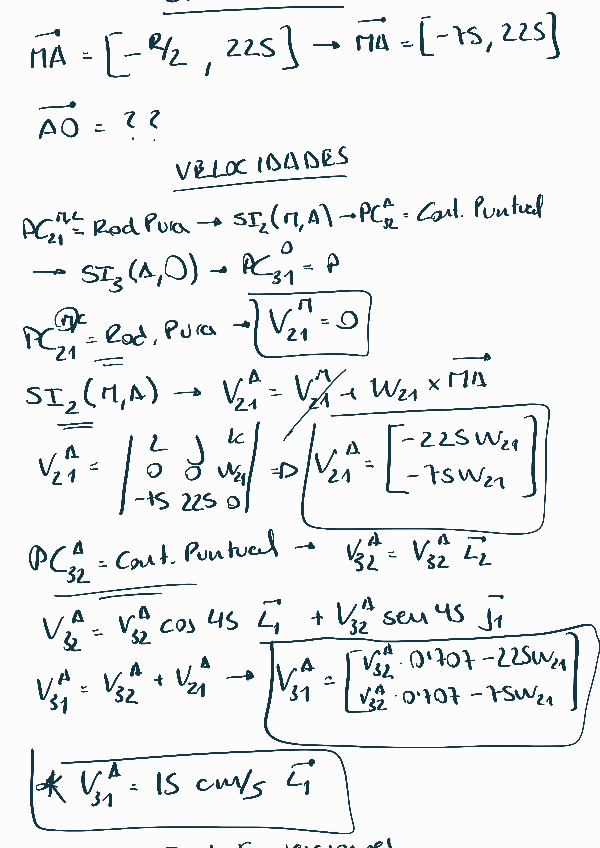 MA = [-R/2 , 225] → MA = [-75, 225]
AO = ??
VELOCIDADES
PC₂₁ᴹᶜ = Rod Pura → SI₂(M,A) → PC₃₂ᴬ = Cont. Puntual
→ SI₃(A,O) → PC₃₁ᴼ = P
PC₂₁ᴹᶜ = Rod. Pura → V₂₁ᴹ = 0
SI₂(M,A) → V₂₁ᴬ = V₂₁ᴹ + W₂₁ × MA
V₂₁ᴬ = | i j k
0 0 W₂₁
-75 225 0 | => V₂₁ᴬ = [-225W₂₁
-75W₂₁]
PC₃₂ᴬ = Cont. Puntual → V₃₂ᴬ = V₃₂ᴬ i₂
V₃₂ᴬ = V₃₂ᴬ cos 45 i₁ + V₃₂ᴬ sen 45 j₁
V₃₁ᴬ = V₃₂ᴬ + V₂₁ᴬ → V₃₁ᴬ = [V₃₂ᴬ · 0'707 - 225W₂₁
V₃₂ᴬ · 0'707 - 75W₂₁]
* V₃₁ᴬ = 15 cm/s i₁